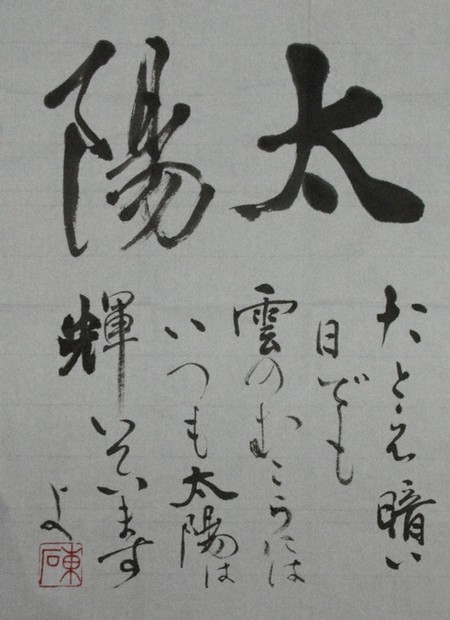 太陽
たとえ暗い
日でも
雲のむこうには
いつも太陽は
輝いています